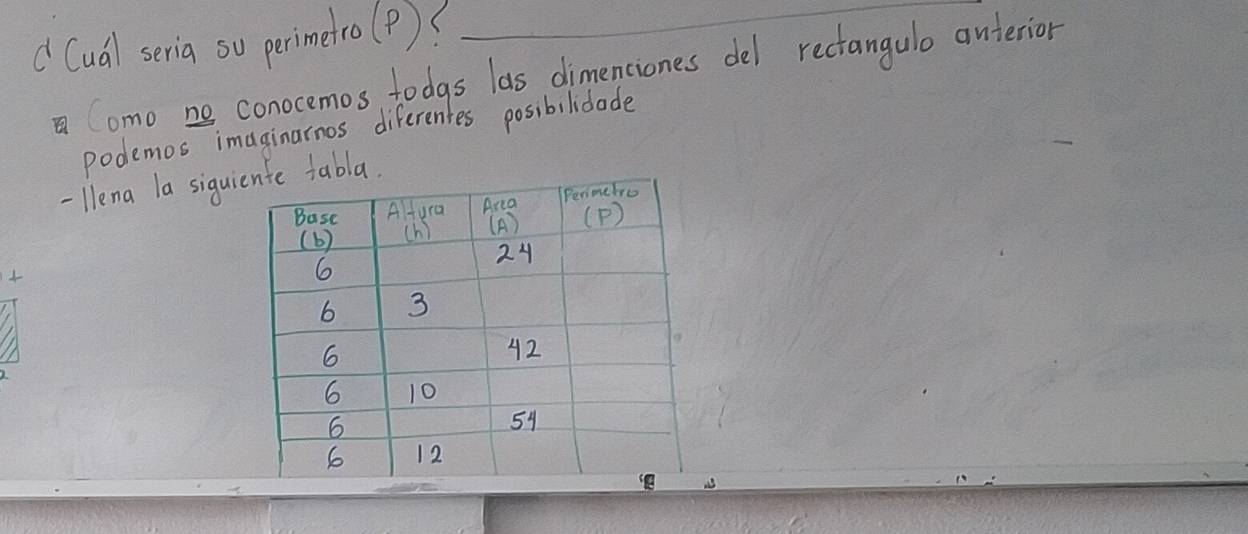 ¿Cuál seria su perimetro (P)?
Como no conocemos todas las dimenciones del rectangulo anterior
podemos imaginarnos diferentes posibilidade
-llena la siguiente tabla.
Base (b) Altura (h) Area (A) Perimetro (P)
6 24
6 3
6 42
6 10
6 54
6 12